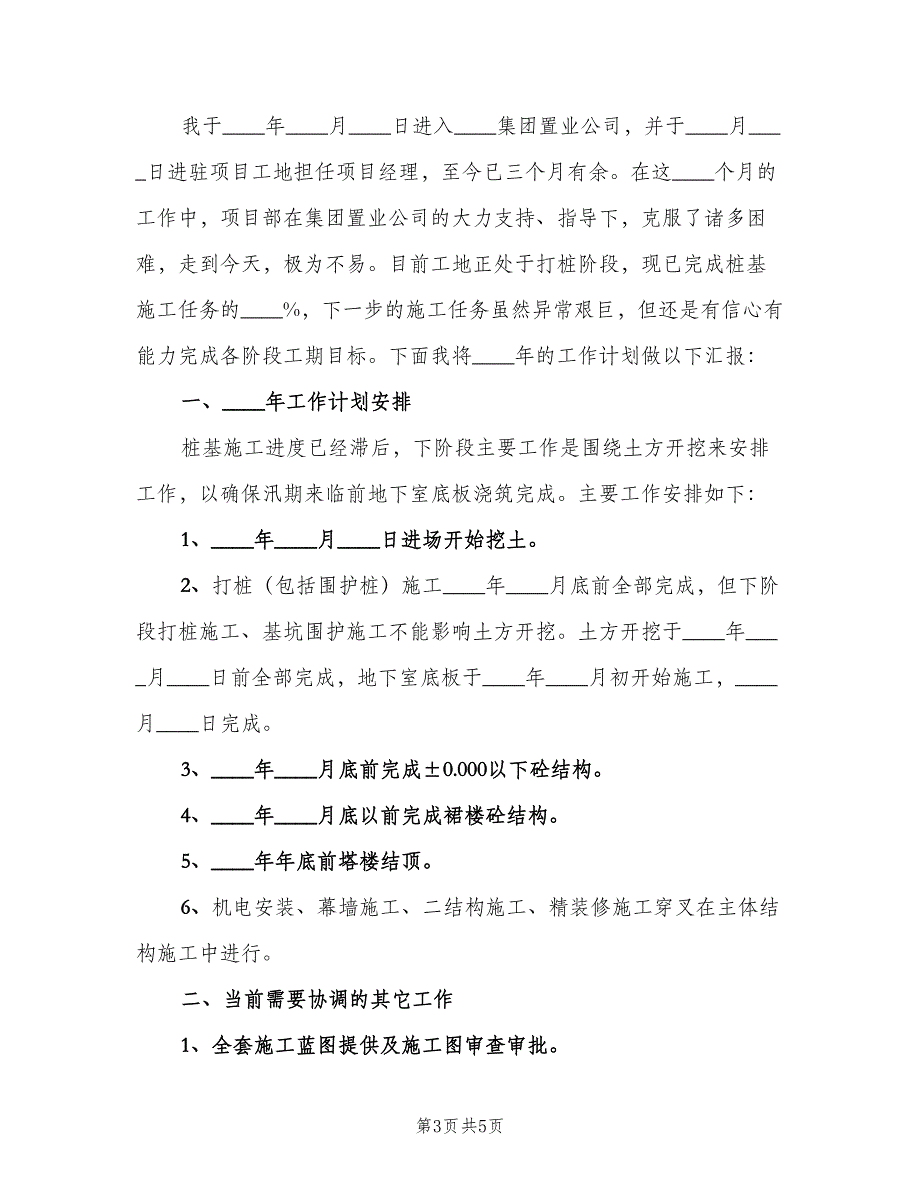 我于____年____月____日进入____集团置业公司，并于____月___
_日进驻项目工地担任项目经理，至今已三个月有余。在这____个月的
工作中，项目部在集团置业公司的大力支持、指导下，克服了诸多困
难，走到今天，极为不易。目前工地正处于打桩阶段，现已完成桩基
施工任务的____%，下一步的施工任务虽然异常艰巨，但还是有信心有
能力完成各阶段工期目标。下面我将____年的工作计划做以下汇报：
一、____年工作计划安排
桩基施工进度已经滞后，下阶段主要工作是围绕土方开挖来安排
工作，以确保汛期来临前地下室底板浇筑完成。主要工作安排如下：
1、____年____月____日进场开始挖土。
2、打桩（包括围护桩）施工____年____月底前全部完成，但下阶
段打桩施工、基坑围护施工不能影响土方开挖。土方开挖于____年___
_月____日前全部完成，地下室底板于____年____月初开始施工，____
月____日完成。
3、____年____月底前完成±0.000以下砼结构。
4、____年____月底以前完成裙楼砼结构。
5、____年年底前塔楼结顶。
6、机电安装、幕墙施工、二结构施工、精装修施工穿叉在主体结
构施工中进行。
二、当前需要协调的其它工作
1、全套施工蓝图提供及施工图审查审批。
第3页共5页